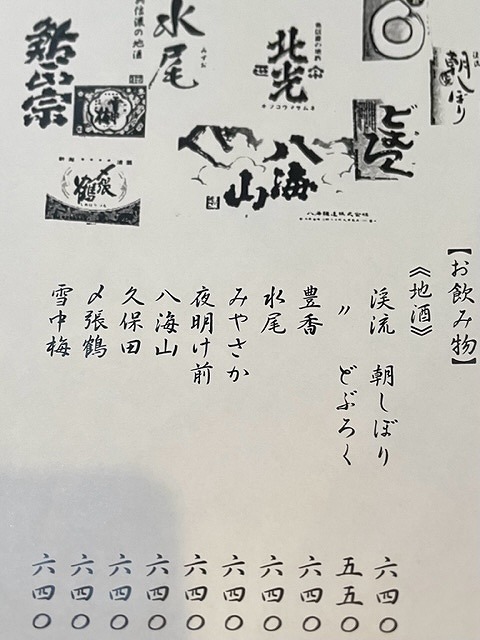 鮎正宗
信濃の地酒
水尾
みずお
北光
キツコウノサムネ
朝しぼり
どぶろく
雪中梅
〆張鶴
八海山
八海醸造株式会社
【お飲み物】
《地酒》
渓流 朝しぼり 六四〇
〃 どぶろく 五五〇
豊香 六四〇
水尾 六四〇
みやさか 六四〇
夜明け前 六四〇
八海山 六四〇
久保田 六四〇
〆張鶴 六四〇
雪中梅 六四〇